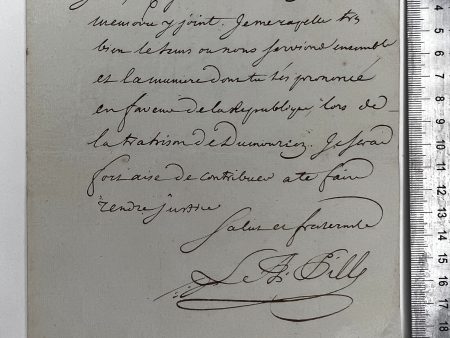 memoire y joint. Je me rapelle très
bien le tems ou nous servions ensemble
et la maniere dont tu t'és prononcé
en faveur de la Republique lors de
la trahison de Dumouriez. Je serai
fort aise de contribuer a te faire
rendre justice
Salut et fraternité
Pille
4
5
6
7
8
9
10
11
12
13
14
15
16
17
18